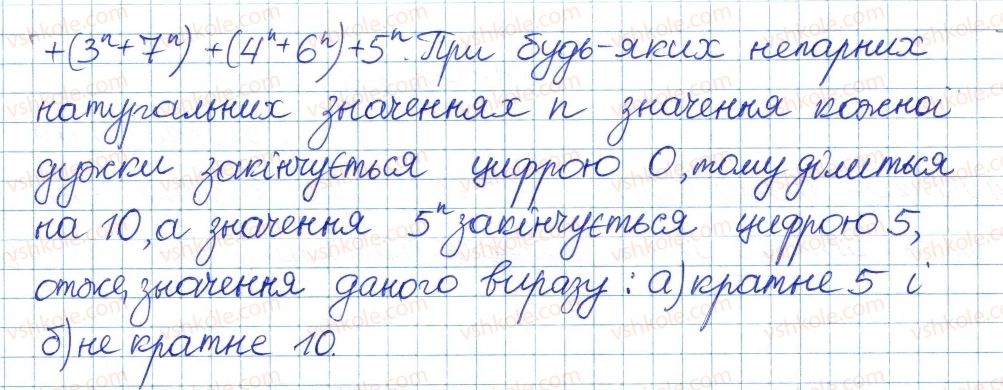 +(3ⁿ+7ⁿ)+(4ⁿ+6ⁿ)+5ⁿ. При будь-яких непарних
натуральних значеннях n значення кожної
дужки закінчується цифрою 0, тому ділиться
на 10, а значення 5ⁿ закінчується цифрою 5,
отже, значення даного виразу: а) кратне 5 і
б) не кратне 10.